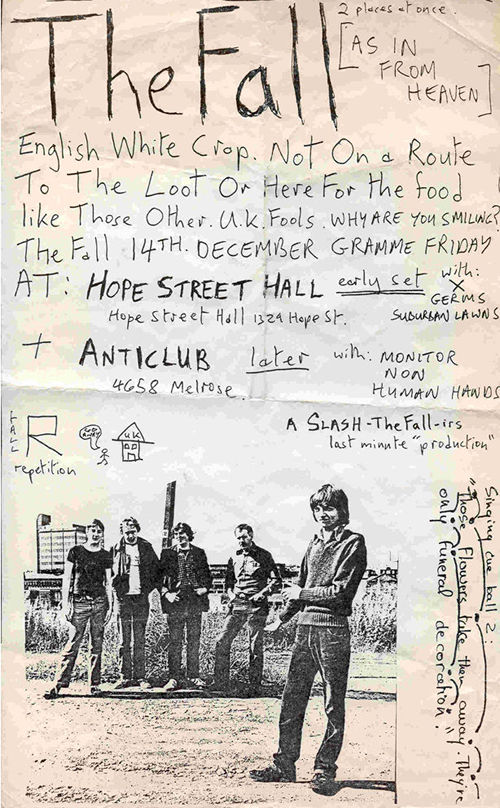 The Fall
2 places at once.
[AS IN
FROM
HEAVEN]
English White Crop. Not On a Route
To The Loot Or Here For the food
like Those Other. U.K. Fools. WHY ARE YOU SMILING?
The Fall 14TH. DECEMBER GRAMME FRIDAY
AT: HOPE STREET HALL early set with:
X
GERMS
SUBURBAN LAWNS
Hope Street Hall 1329 Hope St.
+ ANTICLUB later with: MONITOR
NON
HUMAN HANDS
4658 Melrose.
A SLASH-TheFall-irs
last minute "production"
FALL
R
repetition
UK
Singing cue ball 2:
"Those Flowers take them away. They're
only funeral decoration"